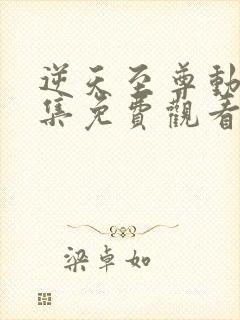 逆天至尊動
集免費觀看
梁卓如